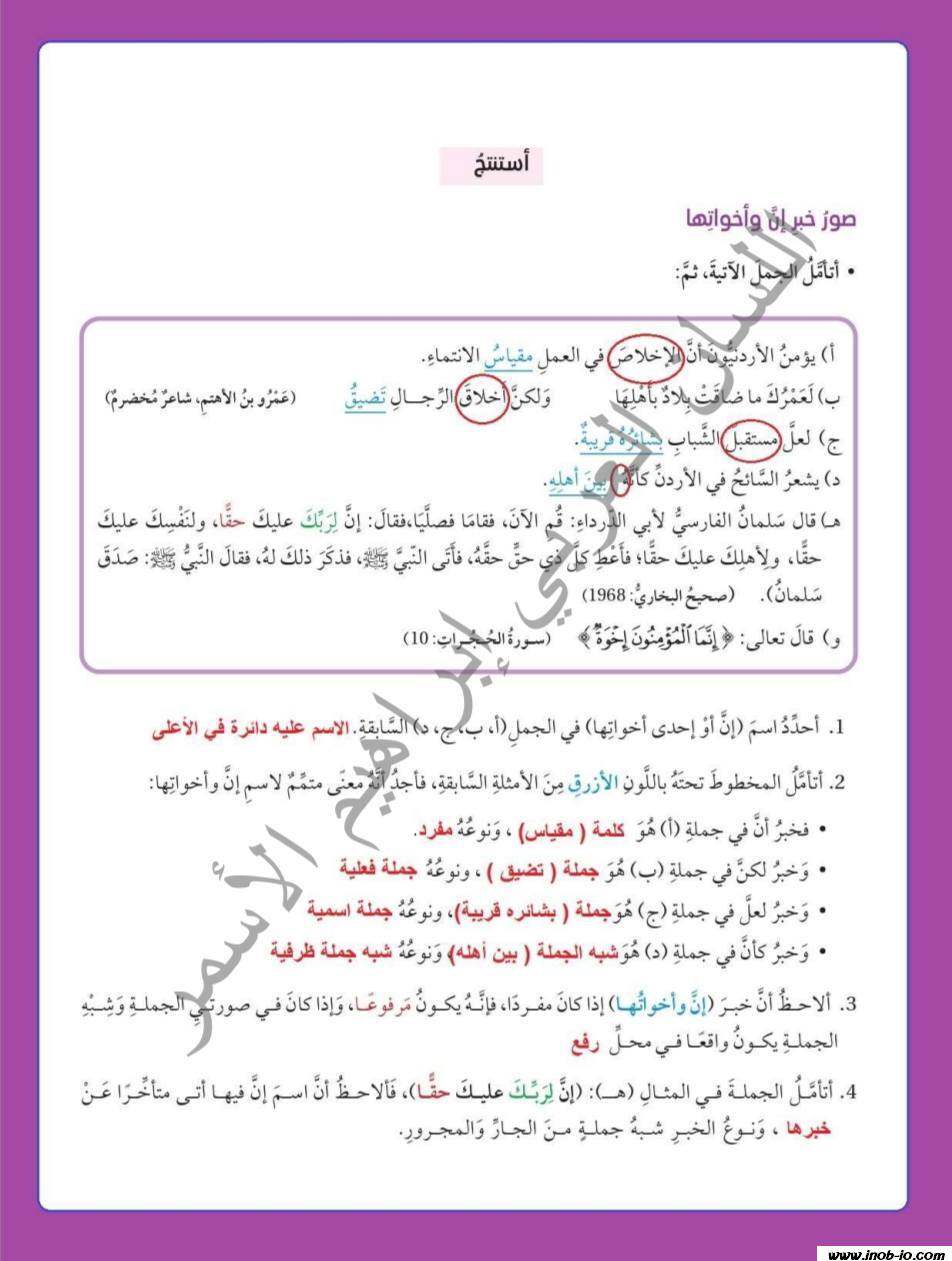 أستنتجُ
صورُ خبرِ إنَّ وأخواتِها
• أتأمَّلُ الجملَ الآتيةَ، ثمَّ:
أ) يؤمنُ الأردنيُّونَ أنَّ الإخلاصَ في العملِ مقياسُ الانتماءِ.
ب) لَعَمْرُكَ ما ضاقَتْ بِلادٌ بأَهْلِهَا وَلكنَّ أَخلاقَ الرِّجـــالِ تَضيقُ (عَمْرُو بنُ الأهتمِ، شاعرٌ مُخضرمٌ)
ج) لعلَّ مستقبلَ الشَّبابِ بشائرُهُ قريبةٌ.
د) يشعرُ السَّائحُ في الأردنِّ كأنَّهُ بينَ أهلِهِ.
هـ) قال سَلمانُ الفارسيُّ لأبي الدَّرداءِ: قُم الآنَ، فقامَا فصلَّيَا،فقالَ: إنَّ لِرَبِّكَ عليكَ حقًّا، ولنَفْسِكَ عليكَ
حقًّا، ولأهلِكَ عليكَ حقًّا؛ فأَعْطِ كلَّ ذي حقٍّ حقَّهُ، فأَتَى النّبيَّ ﷺ، فذكَرَ ذلكَ لهُ، فقالَ النَّبيُّ ﷺ: صَدَقَ
سَلمانُ). (صحيحُ البخاريُّ: 1968)
و) قالَ تعالى: ﴿إِنَّمَا ٱلْمُؤْمِنُونَ إِخْوَةٌ﴾ (سورةُ الحُجُراتِ: 10)
1. أحدِّدُ اسمَ (إنَّ أوْ إحدى أخواتِها) في الجملِ (أ، ب، ج، د) السَّابقةِ. الاسم عليه دائرة في الأعلى
2. أتأمَّلُ المخطوطَ تحتَهُ باللَّونِ الأزرقِ مِنَ الأمثلةِ السَّابقةِ، فأجدُ أنَّهُ معنًى متمِّمٌ لاسمِ إنَّ وأخواتِها:
• فخبرُ أنَّ في جملةِ (أ) هُوَ كلمة ( مقياس) ، وَنوعُهُ مفرد.
• وَخبرُ لكنَّ في جملةِ (ب) هُوَ جملة ( تضيق ) ، ونوعُهُ جملة فعلية
• وَخبرُ لعلَّ في جملةِ (ج) هُوَجملة ( بشائره قريبة)، ونوعُهُ جملة اسمية
• وَخبرُ كأنَّ في جملةِ (د) هُوَ شبه الجملة ( بين أهله)، وَنوعُهُ شبه جملة ظرفية
3. ألاحظُ أنَّ خبرَ (إنَّ وأخواتُهـا) إذا كانَ مفـردًا، فإنَّـهُ يكـونُ مَرفوعًـا، وَإذا كانَ فـي صورتـيِ الجملـةِ وَشِبْهِ
الجملـةِ يكـونُ واقعًـا فـي محـلِّ رفع
4. أتأمَّـلُ الجملـةَ فـي المثـالِ (هـ): (إنَّ لِرَبِّـكَ عليـكَ حقًّـا)، فَألاحـظُ أنَّ اسـمَ إنَّ فيهـا أتـى متأخِّـرًا عَـنْ
خبرها ، وَنـوعُ الخبـرِ شـبهُ جملـةٍ مـنَ الجـارِّ وَالمجـرورِ.
اللسان العربي إبراهيم الأسمر
www.inob-jo.com